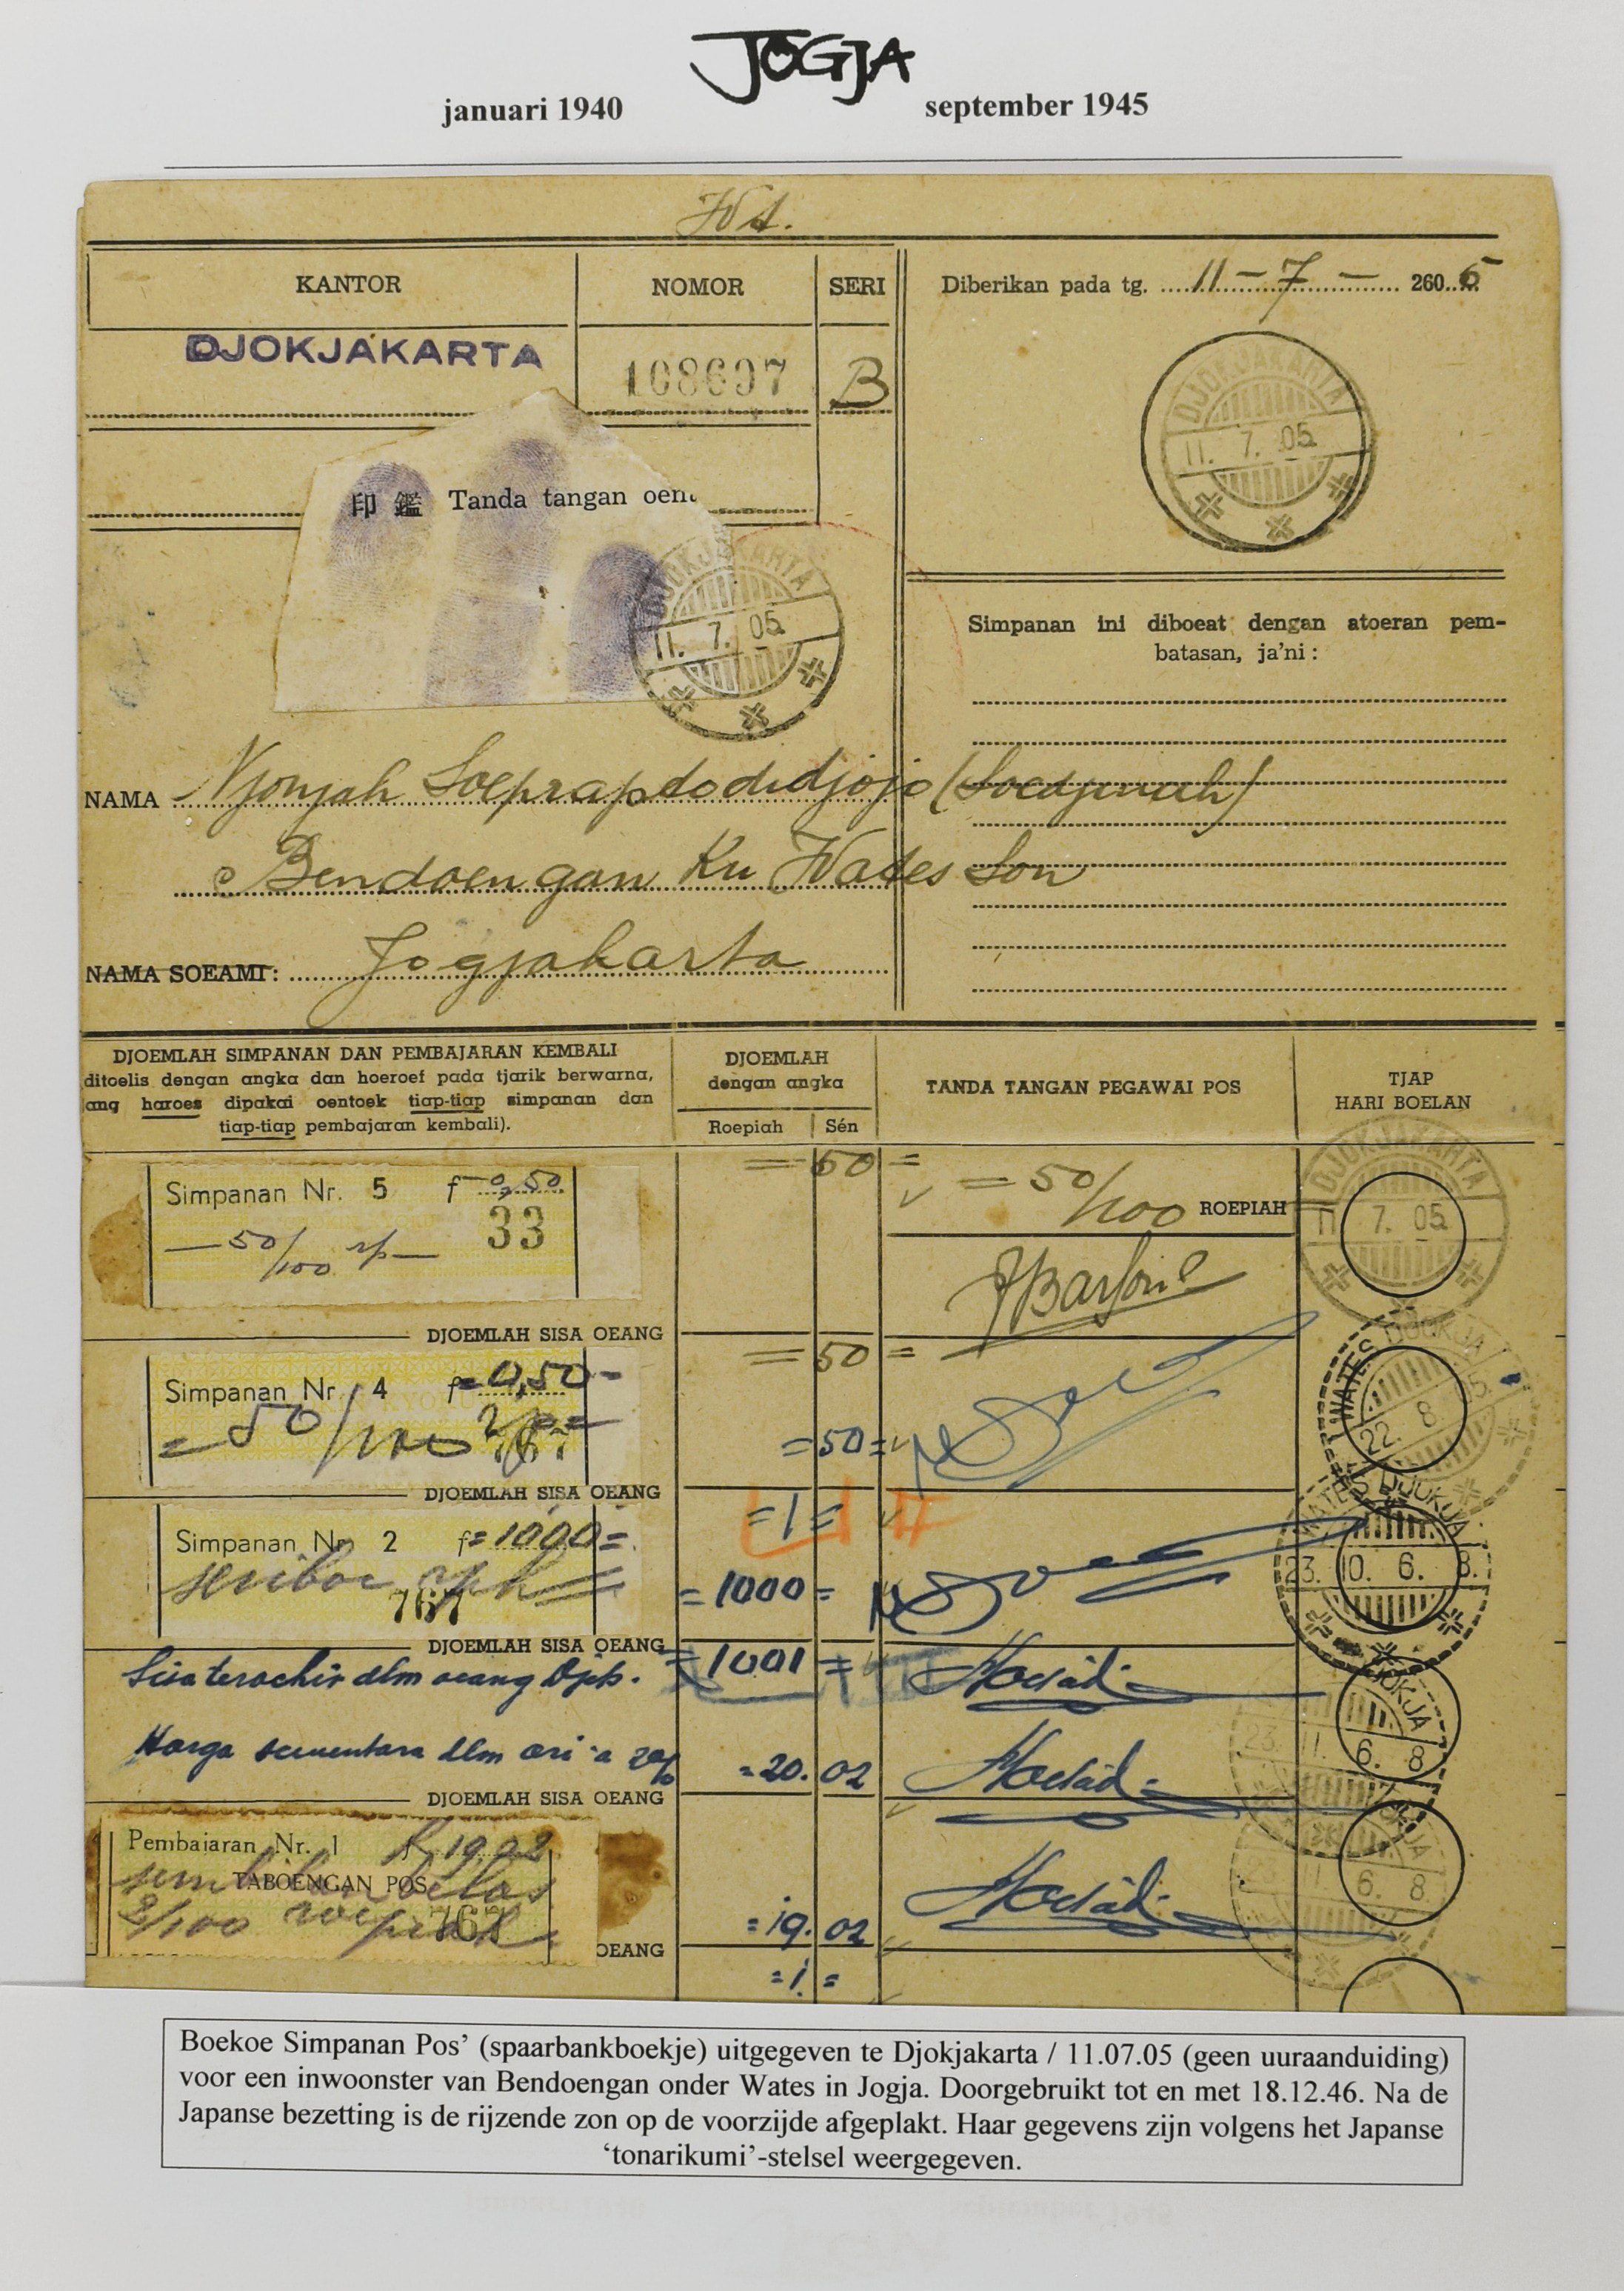 JOGJA
januari 1940 september 1945
Wt.
KANTOR NOMOR SERI
Diberikan pada tg. 11 - 7 - 2605
DJOKJAKARTA 108697 B
DJOKJAKARTA
11. 7. 05.
印鑑 Tanda tangan oent
DJOKJAKARTA
11. 7. 05.
Simpanan ini diboeat dengan atoeran pem-
batasan, ja'ni :
NAMA Njonjah Soepraptodidjojo (Soedjinah)
Bendoengan Ku Wates Son
NAMA SOEAMI : Jogjakarta
DJOEMLAH SIMPANAN DAN PEMBAJARAN KEMBALI
ditoelis dengan angka dan hoeroef pada tjarik berwarna,
ang haroes dipakai oentoek tiap-tiap simpanan dan
tiap-tiap pembajaran kembali).
DJOEMLAH
dengan angka
Roepiah Sén
TANDA TANGAN PEGAWAI POS
TJAP
HARI BOELAN
Simpanan Nr. 5 f 0,50
33
— 50/100 rp —
= 50 =
= 50/100 ROEPIAH
DJOKJAKARTA
11 7. 05.
DJOEMLAH SISA OEANG
= 50 =
Simpanan Nr. 4 f = 0,50 -
= 50/100 rp =
767
= 50 =
WATES DJOKJA
22. 8 05.
DJOEMLAH SISA OEANG
= 1 =
Simpanan Nr. 2 f = 1000 =
seriboe rph
767
= 1000 =
WATES DJOKJA
23. 10. 6. 8.
DJOEMLAH SISA OEANG
= 1001 =
Sisa terachir dlm oeang Djp.
Harga sementara dlm ori a 2%
= 20. 02
DJOKJA
23. 11. 6. 8
DJOEMLAH SISA OEANG
Pembajaran Nr. 1 R 19,02
TABOENGAN POS
sembilan belas
2/100 roepiah
767
= 19. 02
DJOKJA
23. 11. 6. 8.
OEANG
= 1. =
Boekoe Simpanan Pos’ (spaarbankboekje) uitgegeven te Djokjakarta / 11.07.05 (geen uuraanduiding)
voor een inwoonster van Bendoengan onder Wates in Jogja. Doorgebruikt tot en met 18.12.46. Na de
Japanse bezetting is de rijzende zon op de voorzijde afgeplakt. Haar gegevens zijn volgens het Japanse
‘tonarikumi’-stelsel weergegeven.